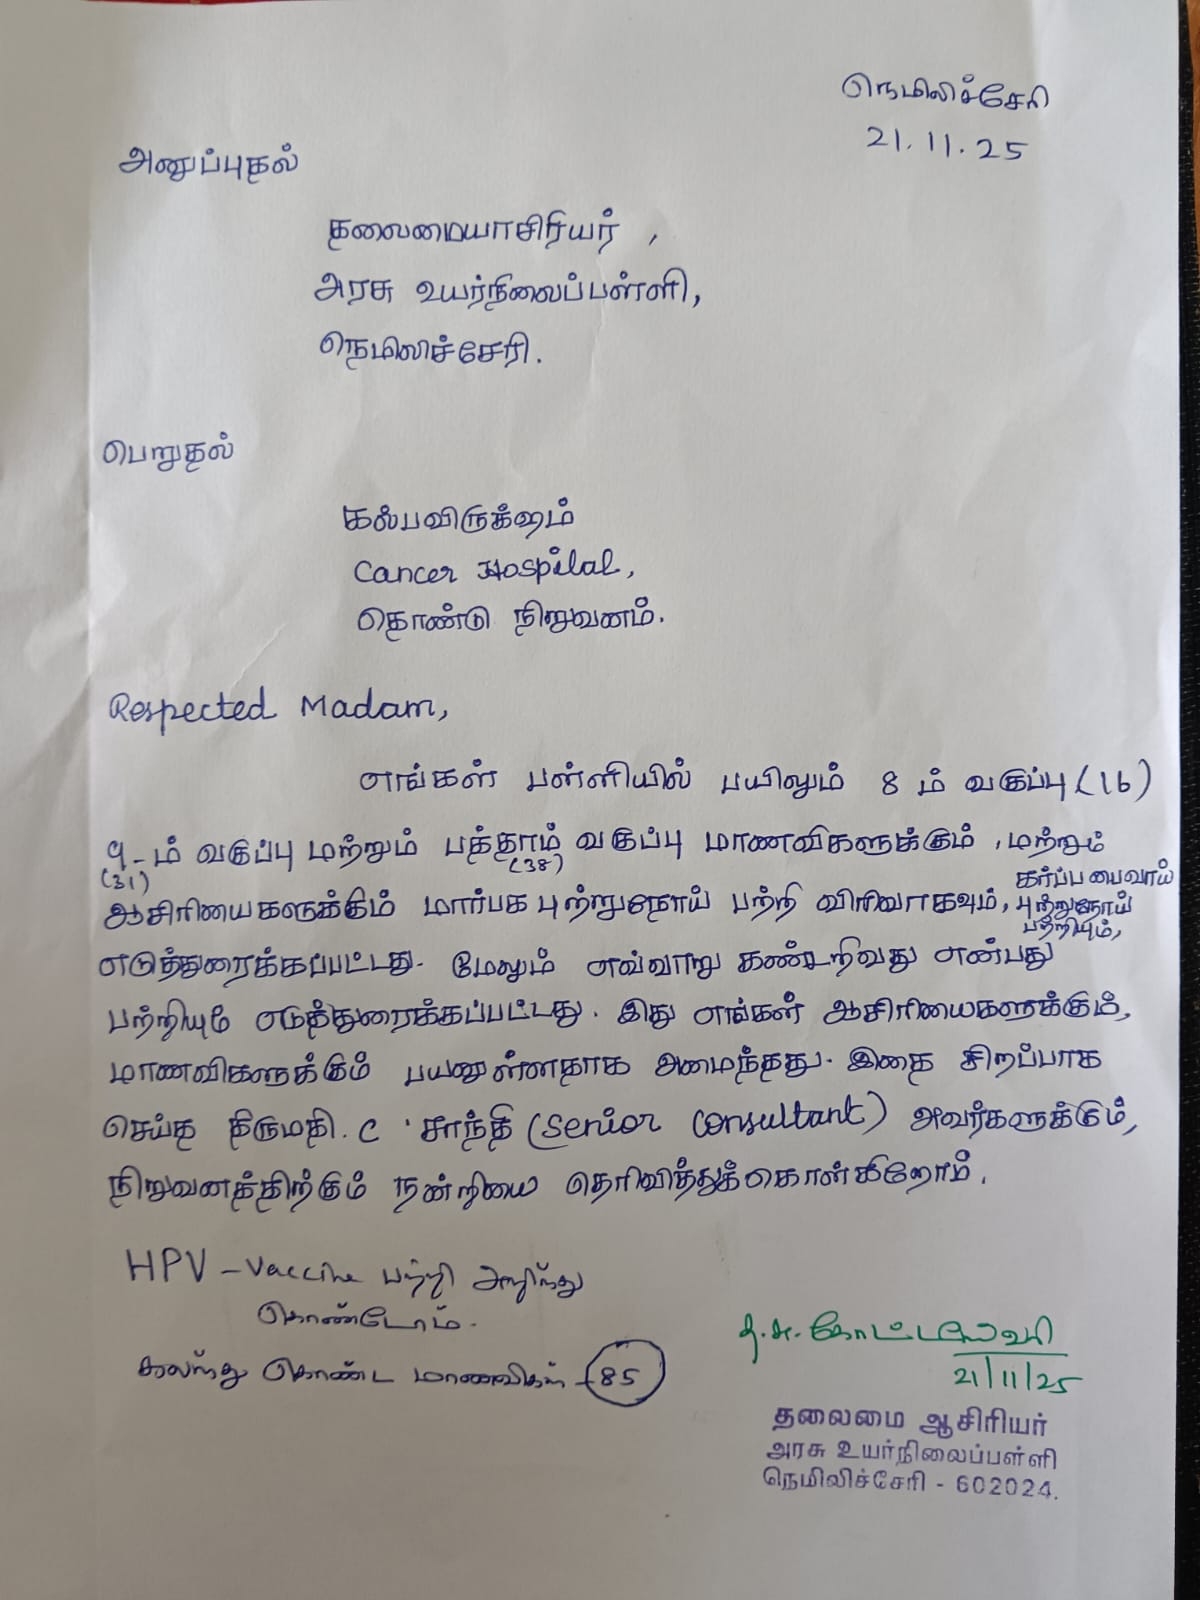 நெமிலிச்சேரி
21.11.25
அனுப்புதல்
தலைமையாசிரியர் ,
அரசு உயர்நிலைப்பள்ளி,
நெமிலிச்சேரி.
பெறுதல்
கல்பவிருக்ஷம்
Cancer Hospital,
தொண்டு நிறுவனம்.
Respected Madam,
எங்கள் பள்ளியில் பயிலும் 8 ம் வகுப்பு (16)
9-ம் வகுப்பு மற்றும் பத்தாம் வகுப்பு மாணவிகளுக்கும், மற்றும்
(31) (38)
கர்ப்ப பைவாய்
ஆசிரியைகளுக்கும் மார்பக புற்றுநோய் பற்றி விரிவாகவும், புற்றுநோய்
பற்றியும்,
எடுத்துரைக்கப்பட்டது. மேலும் எவ்வாறு கண்டறிவது என்பது
பற்றியும் எடுத்துரைக்கப்பட்டது. இது எங்கள் ஆசிரியைகளுக்கும்,
மாணவிகளுக்கும் பயனுள்ளதாக அமைந்தது. இதை சிறப்பாக
செய்த திருமதி. C சாந்தி (Senior Consultant) அவர்களுக்கும்,
நிறுவனத்திற்கும் நன்றியை தெரிவித்துக்கொள்கிறோம்.
HPV - Vaccine பற்றி அறிந்து
கொண்டோம்.
கலந்து கொண்ட மாணவிகள் - 85
த.சு.
21/11/25
தலைமை ஆசிரியர்
அரசு உயர்நிலைப்பள்ளி
நெமிலிச்சேரி - 602024.